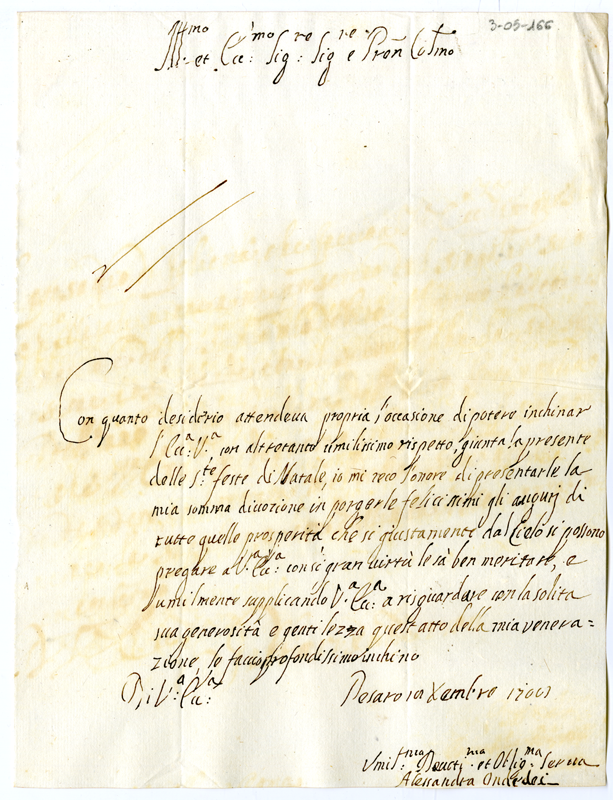 3-05-166
Ill.mo et Ecc:mo Sig:re Sig:re e Pron Col.mo
Con quanto desiderio attendeua propria l'occasione di potere inchinar
l'Ecc:a V.a, con altretanto umilissimo rispetto, giunta la presente
delle S.te feste di Natale, io mi reco l'onore di presentarle la
mia somma diuozione in porgerle felicissimi gli augurj di
tutte quelle prosperità che si giustamente dal Cielo si possono
pregare a V.a Ecc:a con sì gran uirtù le sà ben meritare, e
umilmente supplicando V.a Ecc:a a risguardare con la solita
sua generosità e gentilezza quest atto della mia venera-
zione, le faccio profondissimo inchino
Di V.a Ecc:a
Pesaro Xembre
Vmil.ma Deuot.ma et Obl.ma Serua
Alessandra